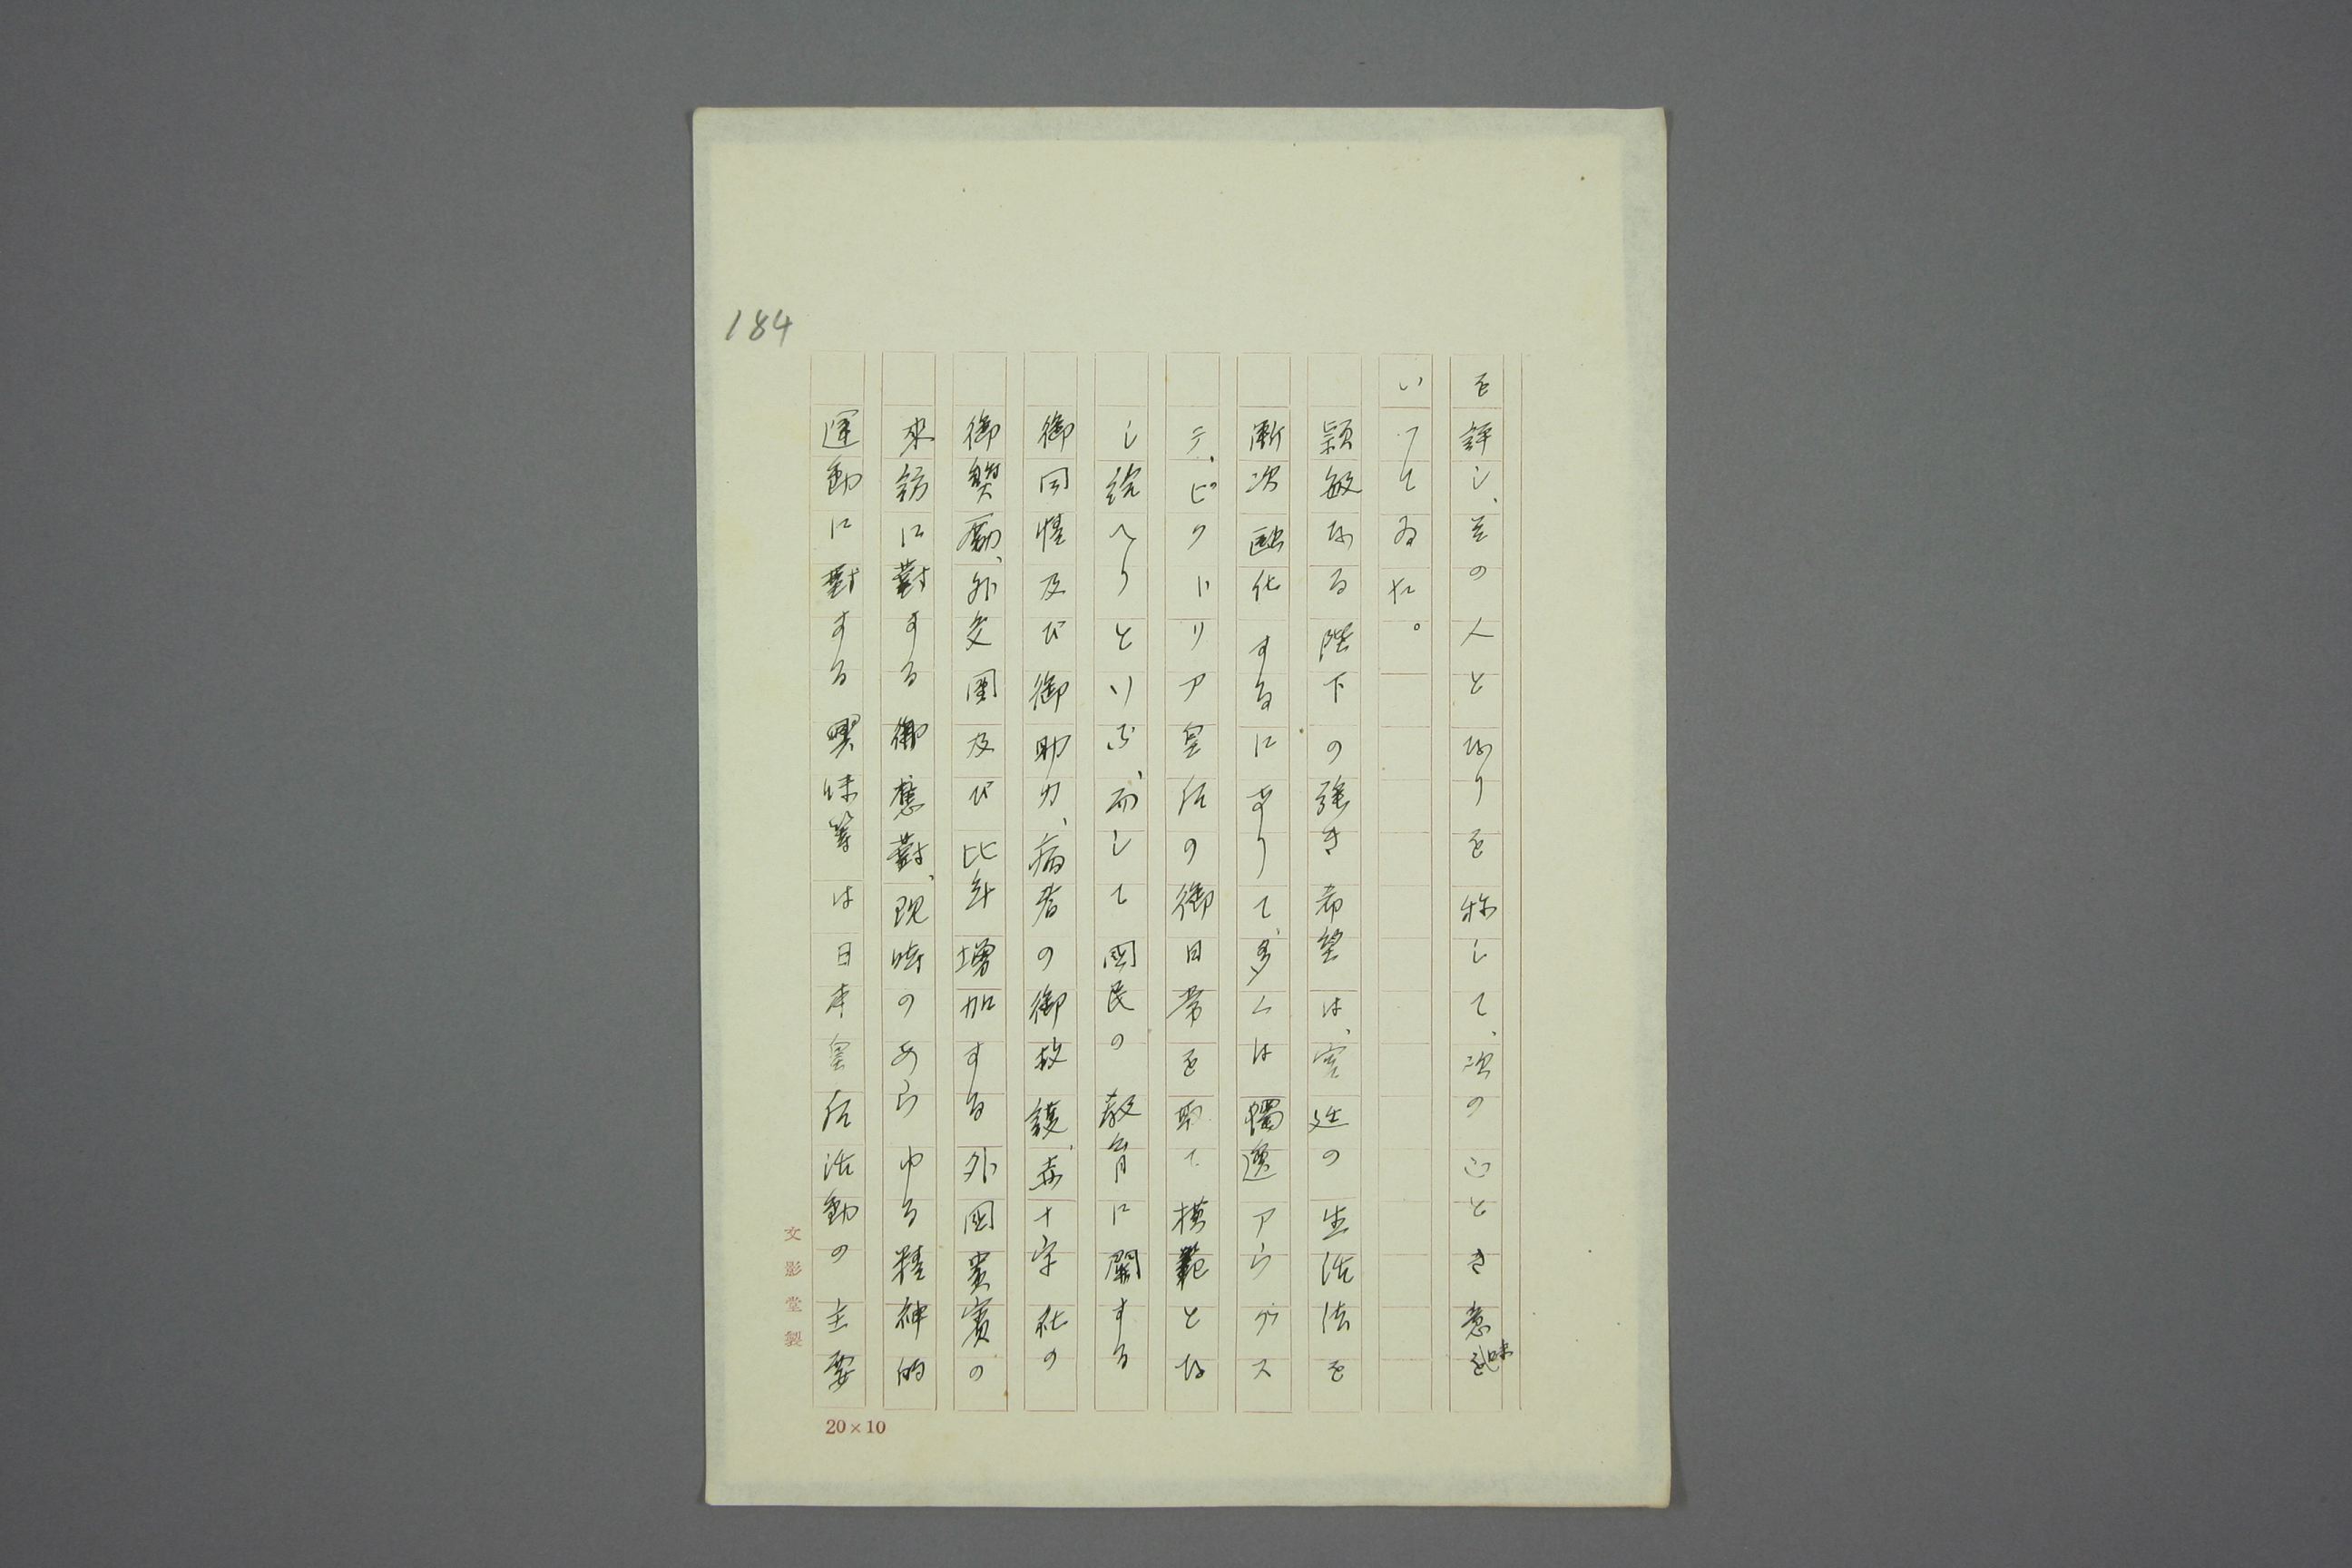 184
を評し、その人となりを称して、次の如き意味を
いつてゐた。
穎敏なる陛下の強き希望は、宮廷の生活法を
漸次融化するにありて、多くは獨逸アウグス
テ、ビクトリア皇后の御日常を取て模範とな
し給へりといふ、而して國民の教育に關する
御同情及び御助力、病者の御救護、赤十字社の
御奬勵、外交團及び比年増加する外國貴賓の
來訪に對する御應對、現時のあらゆる精神的
運動に對する興味等は日本皇后活動の主要
文影堂製
20×10